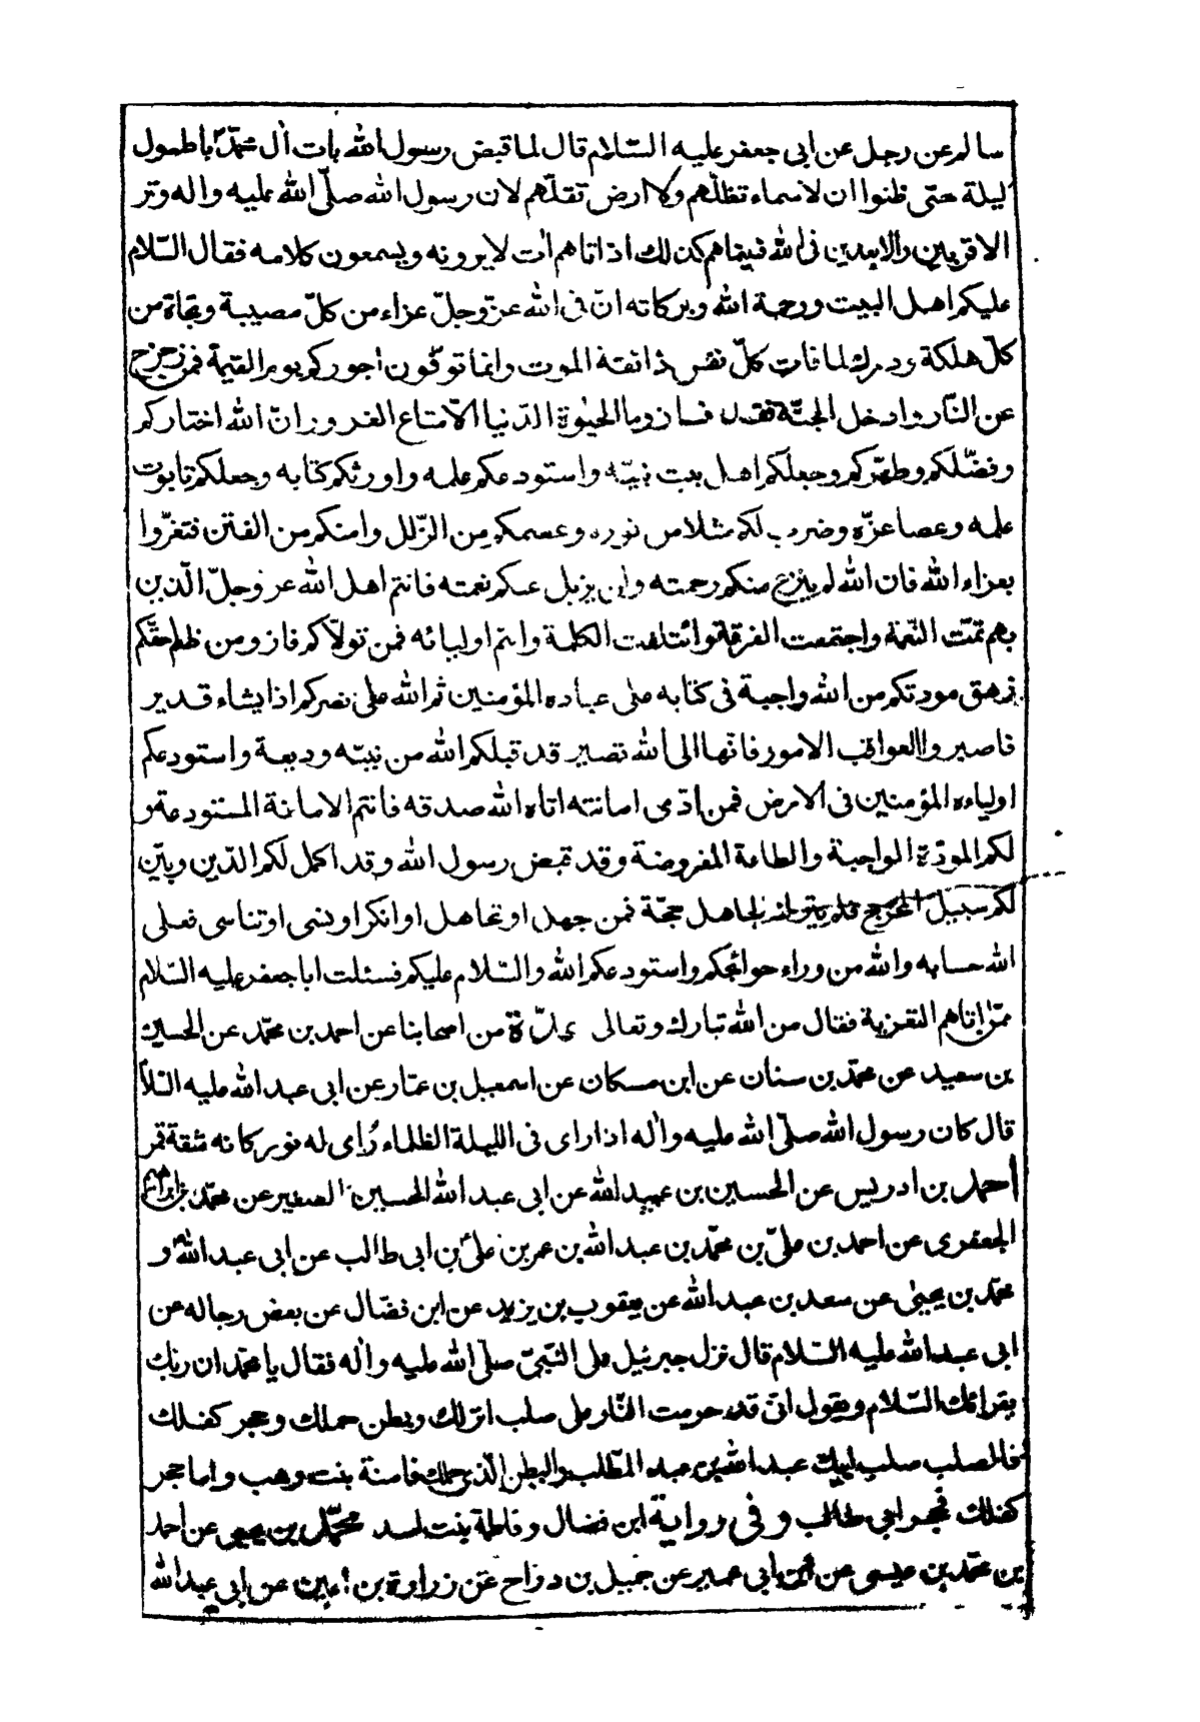 سالم عن رجل عن ابى جعفر عليه السّلام قال لما قبض رسول الله بات اٰل محمّد باطول
ليلة حتى ظنوا ان لا سماء تظلّهم ولا ارض تقلّهم لان رسول الله صلّى الله عليه واله وتر
الاقربين والابعدين فى الله فبيناهم كذلك اذ اتاهم اٰت لا يرونه ويسمعون كلامه فقال السّلام
عليكم اهل البيت ورحمة الله وبركاته انّ فى الله عزّ وجلّ عزاء من كلّ مصيبة ونجاة من
كلّ هلكة ودركا لما فات كلّ نفس ذائقة الموت وانما توفّون اجوركم يوم القيٰمة فمن زحزح
عن النّار وادخل الجنّة فقد فاز وما الحيٰوة الدّنيا الّا متاع الغرور انّ الله اختاركم
وفضّلكم وطهّركم وجعلكم اهل بيت نبيّه واستودعكم علمه واورثكم كتابه وجعلكم تابوت
علمه وعصا عزّه وضرب لكم مثلا من نوره وعصمكم من الزّلل وامنكم من الفتن فتعزّوا
بعزاء الله فان الله لم ينزع منكم رحمته ولن يزيل عنكم نعمته فانتم اهل الله عز وجلّ الّذين
بهم تمّت النّعمة واجتمعت الفرقة وائتلفت الكلمة وانتم اوليائه فمن تولّاكم فاز ومن ظلم حقّكم
زهق مودتكم من الله واجبة فى كتابه على عباده المؤمنين ثم الله على نصركم اذا يشاء قدير
فاصبروا لعواقب الامور فانّها الى الله تصير قد قبلكم الله من نبيّه وديعة واستودعكم
اولياءه المؤمنين فى الارض فمن ادّى امانته اتاه الله صدقه فانتم الامانة المستودعة و
لكم المودّة الواجبة والطاعة المفروضة وقد قبض رسول الله وقد اكمل لكم الدّين وبيّن
لكم سبيل المخرج فلم يترك لجاهل حجّة فمن جهل او تجاهل او انكر او نسى او تناسى فعلى
الله حسابه والله من وراء حوائجكم واستودعكم الله والسّلام عليكم فسئلت ابا جعفر عليه السّلام
ممّن اتاهم التعزية فقال من الله تبارك وتعالى عدّة من اصحابنا عن احمد بن محمّد عن الحسين
بن سعيد عن محمّد بن سنان عن ابن مسكان عن اسمعيل بن عمّار عن ابى عبد الله عليه السّلا
قال كان رسول الله صلّى الله عليه واٰله اذا راى فى الليلة الظلماء رُاى له نور كانه شقة قمر
احمد بن ادريس عن الحسين بن عبيد الله عن ابى عبد الله الحسين الصغير عن محمّد بن ابراهيم
الجعفرى عن احمد بن علىّ بن محمّد بن عبد الله بن عمر بن علىّ بن ابى طالب عن ابى عبد الله و
محمّد بن يحيىٰ عن سعد بن عبد الله عن يعقوب بن يزيد عن ابن فضّال عن بعض رجاله عن
ابى عبد الله عليه السّلام قال نزل جبرئيل على النّبىّ صلّى الله عليه واٰله فقال يا محمّد ان ربّك
يقرائك السّلام ويقول انّى قد حرمت النّار على صلب انزلك وبطن حملك وحجر كفلك
فالصلب صلب ابيك عبد الله بن عبد المطّلب والبطن الّذى حملك فامنة بنت وهب واما حجر
كفلك فحجر ابى طالب وفى رواية ابن فضال وفاطمة بنت اسد محمّد بن يحيى عن احمد
بن محمّد بن عيسى عن ابن ابى عمير عن جميل بن درّاج عن زرارة بن اعين عن ابى عبد الله